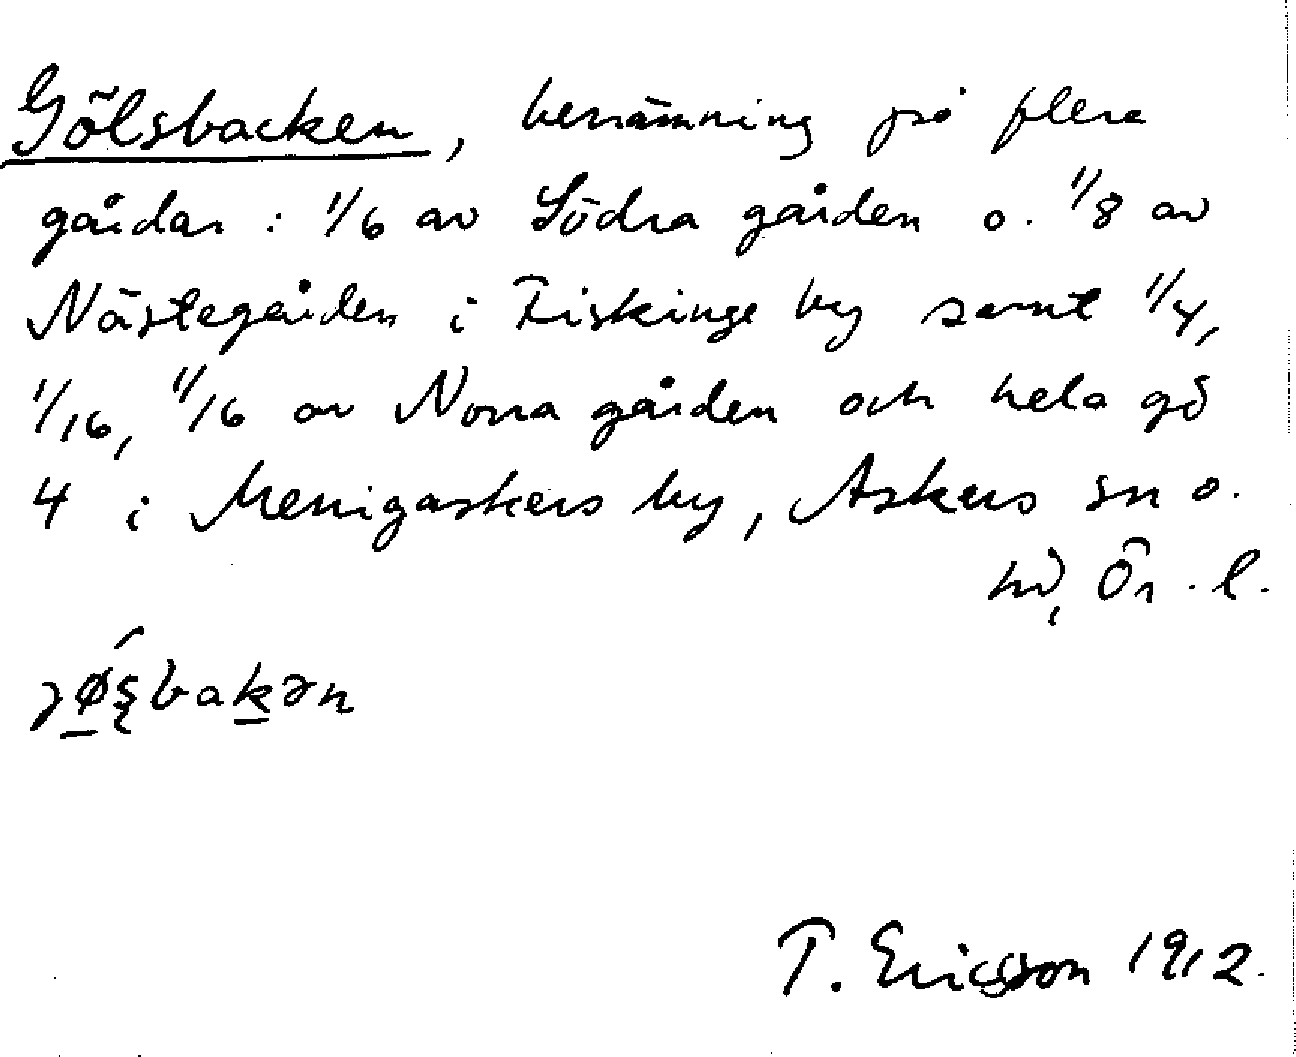 Gölsbacken, benämning på flera
gårdar: 1/6 av Södra gården o. 1/8 av
Nästegården i Fiskinge by samt 1/4,
1/16, 1/16 av Norra gården och hela gd
4 i Menigaskers by, Askers sn o.
hd, Ör. l.
T. Ericsson 1912.